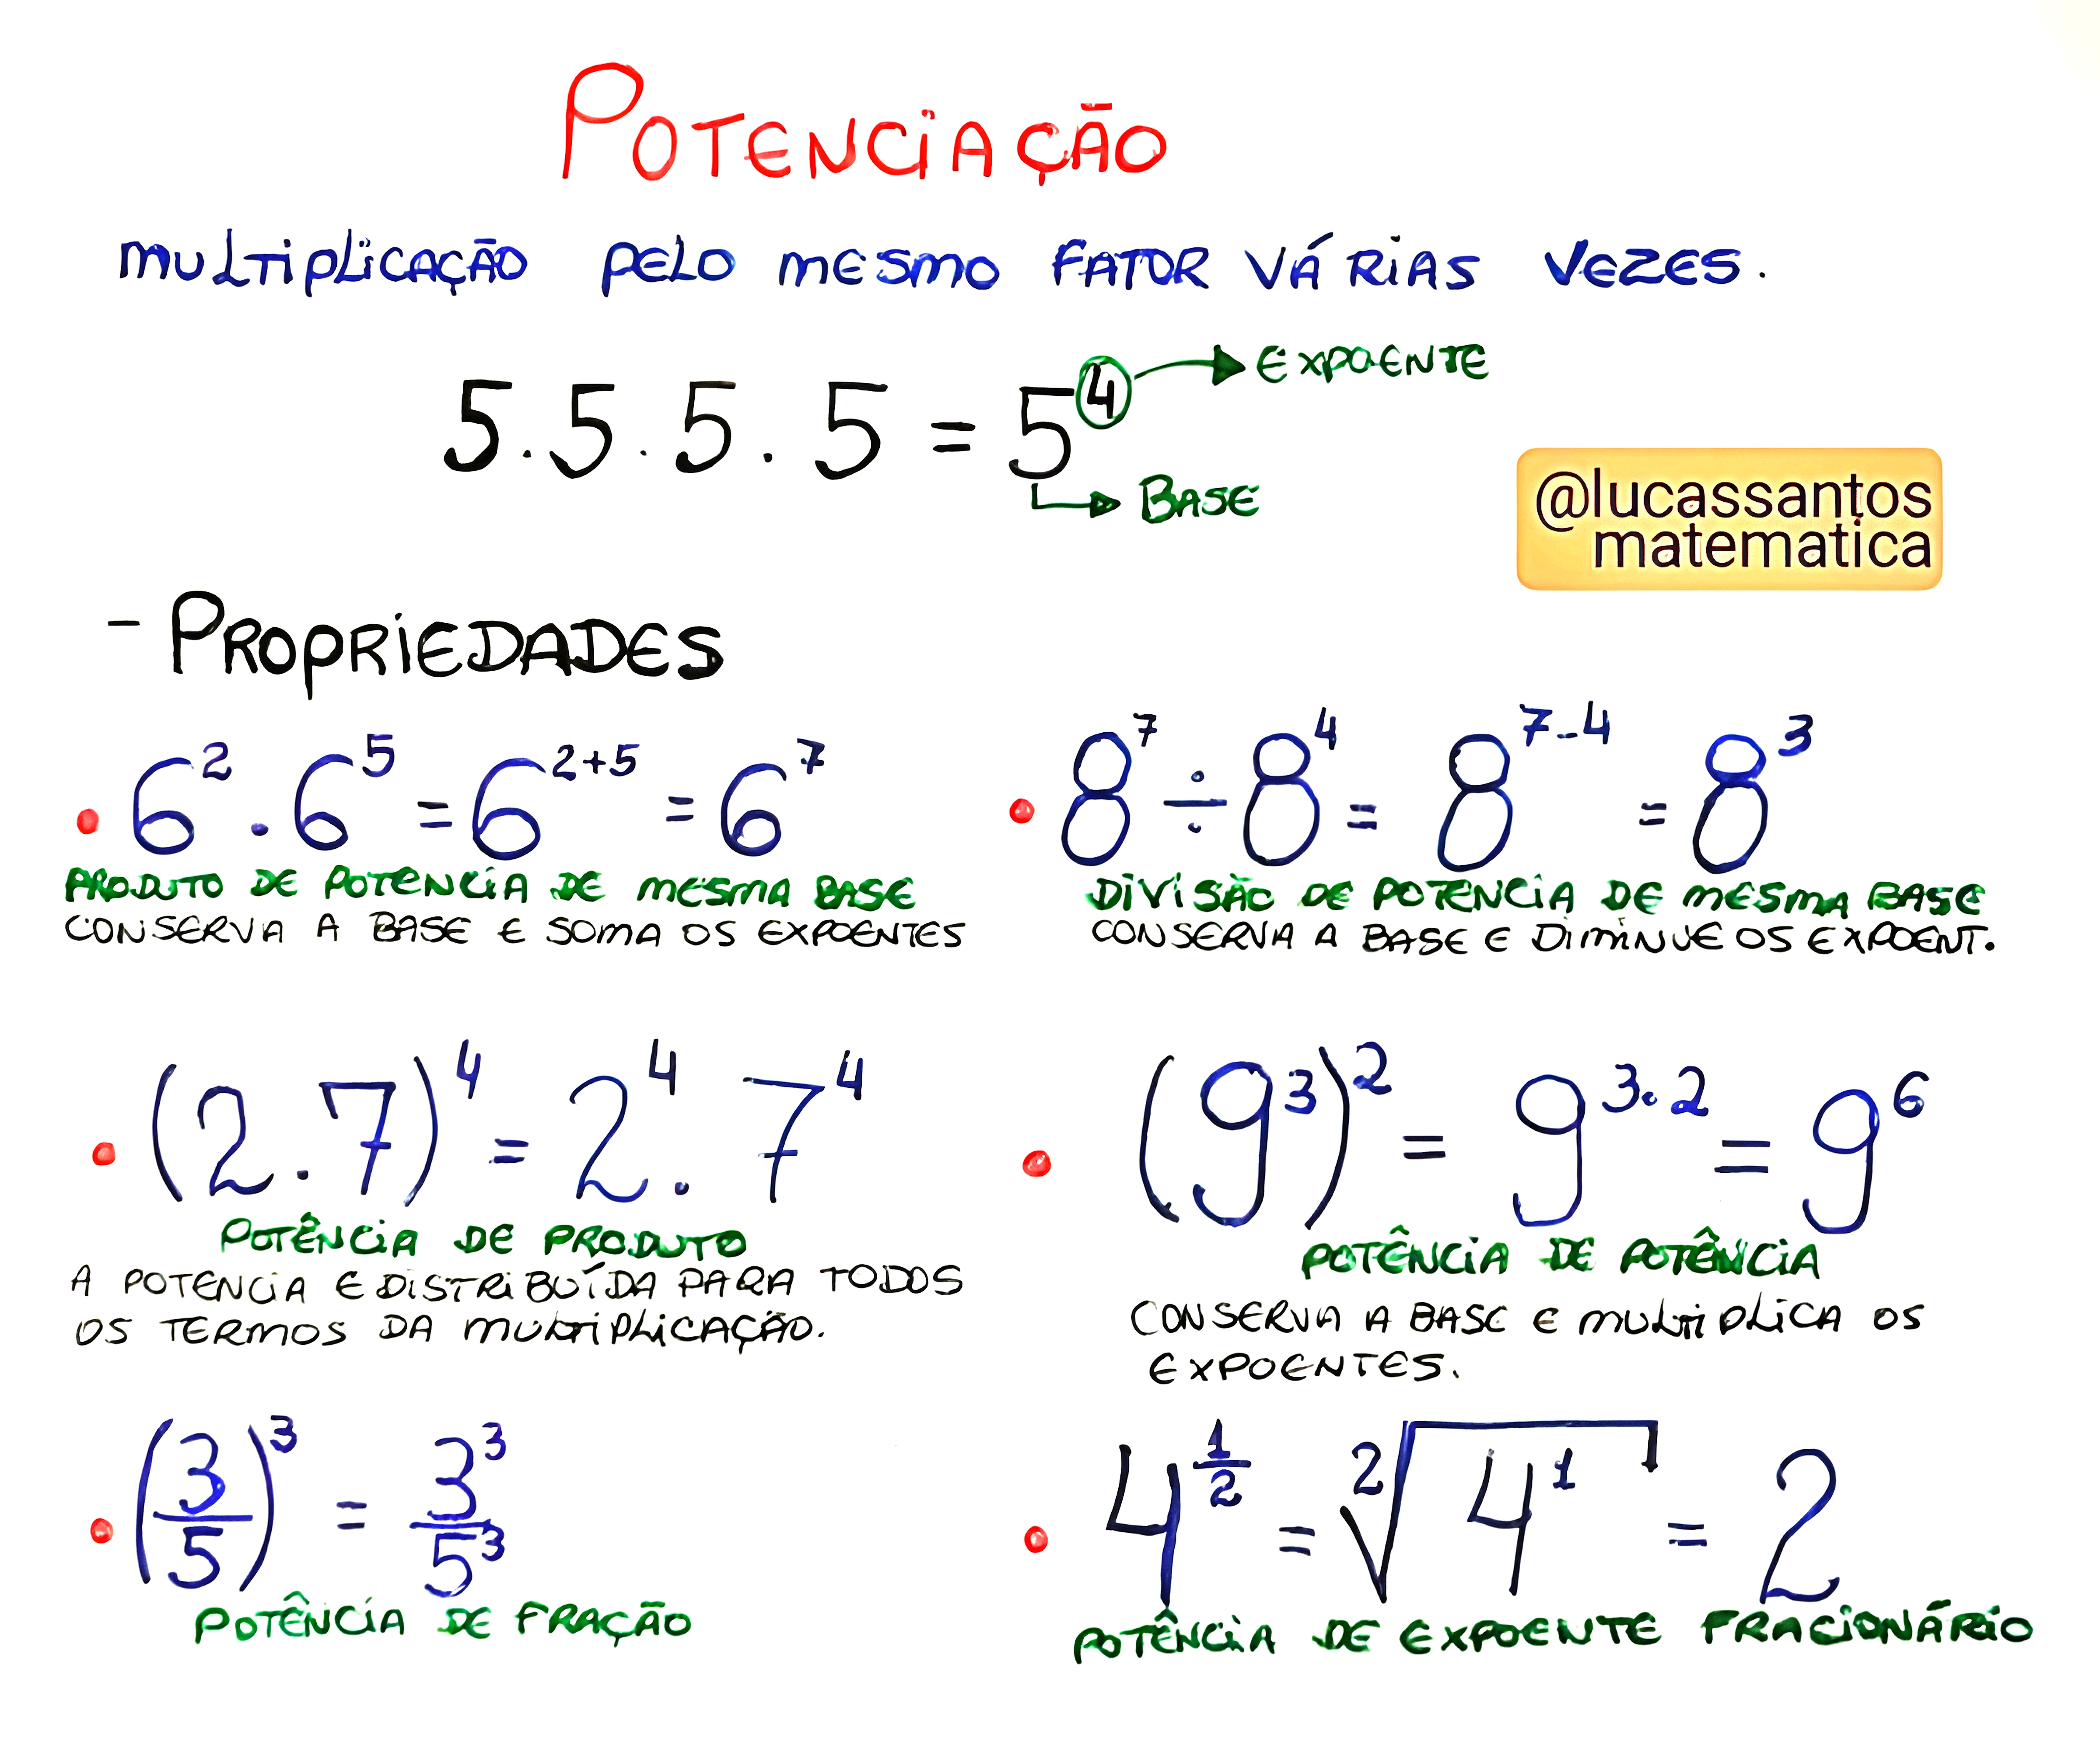 POTENCIAÇÃO
MULTIPLICAÇÃO PELO MESMO FATOR VÁRIAS VEZES.
5.5.5.5 = 5⁴ → EXPOENTE
→ BASE
@lucassantos
matematica
- PROPRIEDADES
• 6² . 6⁵ = 6²⁺⁵ = 6⁷
PRODUTO DE POTENCIA DE MESMA BASE
CONSERVA A BASE E SOMA OS EXPOENTES
• 8⁷ ÷ 8⁴ = 8⁷⁻⁴ = 8³
DIVISÃO DE POTENCIA DE MESMA BASE
CONSERVA A BASE E DIMINUE OS EXPOENT.
• (2.7)⁴ = 2⁴ . 7⁴
POTÊNCIA DE PRODUTO
A POTENCIA E DISTRIBUÍDA PARA TODOS
OS TERMOS DA MULTIPLICAÇÃO.
• (9³)² = 9^(3.2) = 9⁶
POTÊNCIA DE POTÊNCIA
CONSERVA A BASE E MULTIPLICA OS
EXPOENTES.
• (3/5)³ = 3³/5³
POTÊNCIA DE FRAÇÃO
• 4^(1/2) = ²√4¹ = 2
POTÊNCIA DE EXPOENTE FRACIONÁRIO